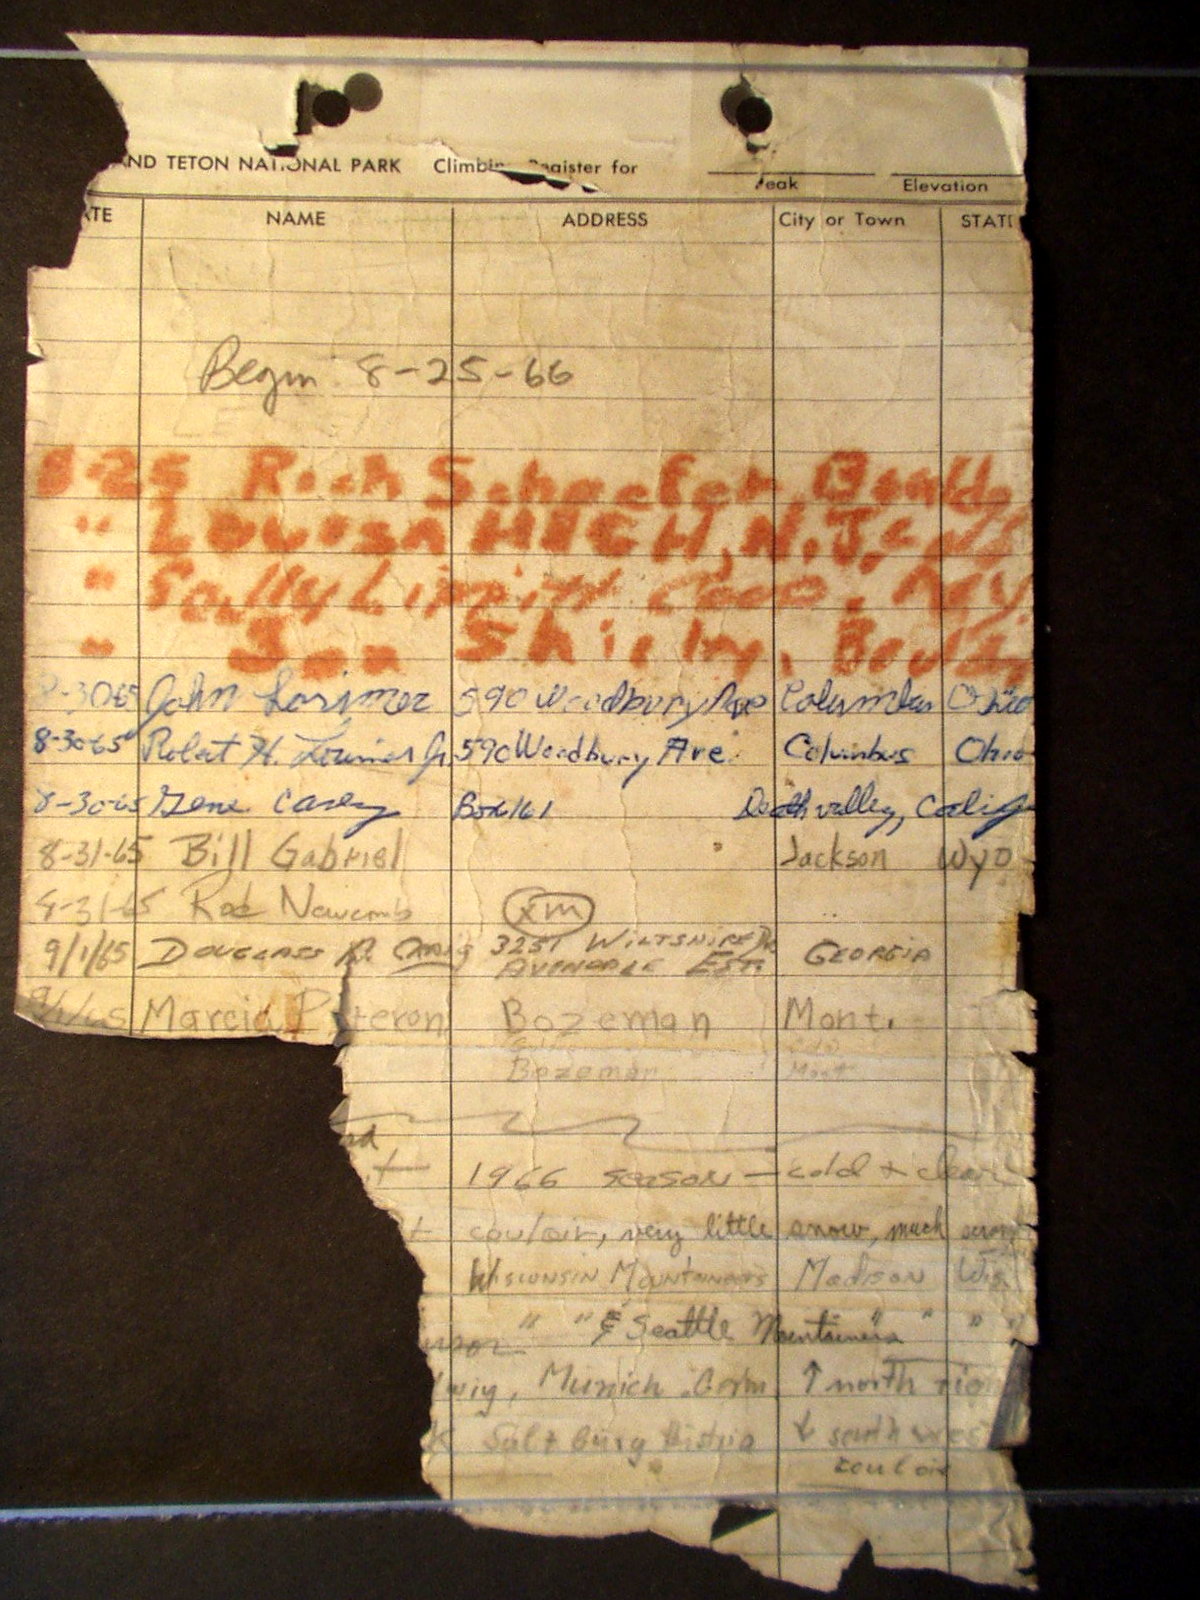 AND TETON NATIONAL PARK Climbing Register for
Peak Elevation
ATE NAME ADDRESS City or Town STATE
Begin 8-25-66
8-25 Rich Schaefer, Bould
" Louisa HIGH, N.J.
" Sally
" Jon Boul
8-30 65 John Lorimer 590 Woodbury Ave Columbus Ohio
8-30-65 Robert H. Lorimer Jr. 590 Woodbury Ave. Columbus Ohio
8-30-65 Gene Carey Box 161 Death Valley, Calif
8-31-65 Bill Gabriel Jackson Wyo
8-31-65 Rod Newcomb
9/1/65 DOUGLASS CRAIG 3257 WILTSHIRE GEORGIA
AVONDALE EST.
9/1/65 Marcia Peteron Bozeman Mont.
Bozeman Mont
1966 season - cold + clear
couloir, very little snow, much
WISCONSIN MOUNTAINEERS Madison Wis
" " & Seattle Mountaineers " " "
wig, Munich ↑ north
k Salzburg ↓ south west
couloir